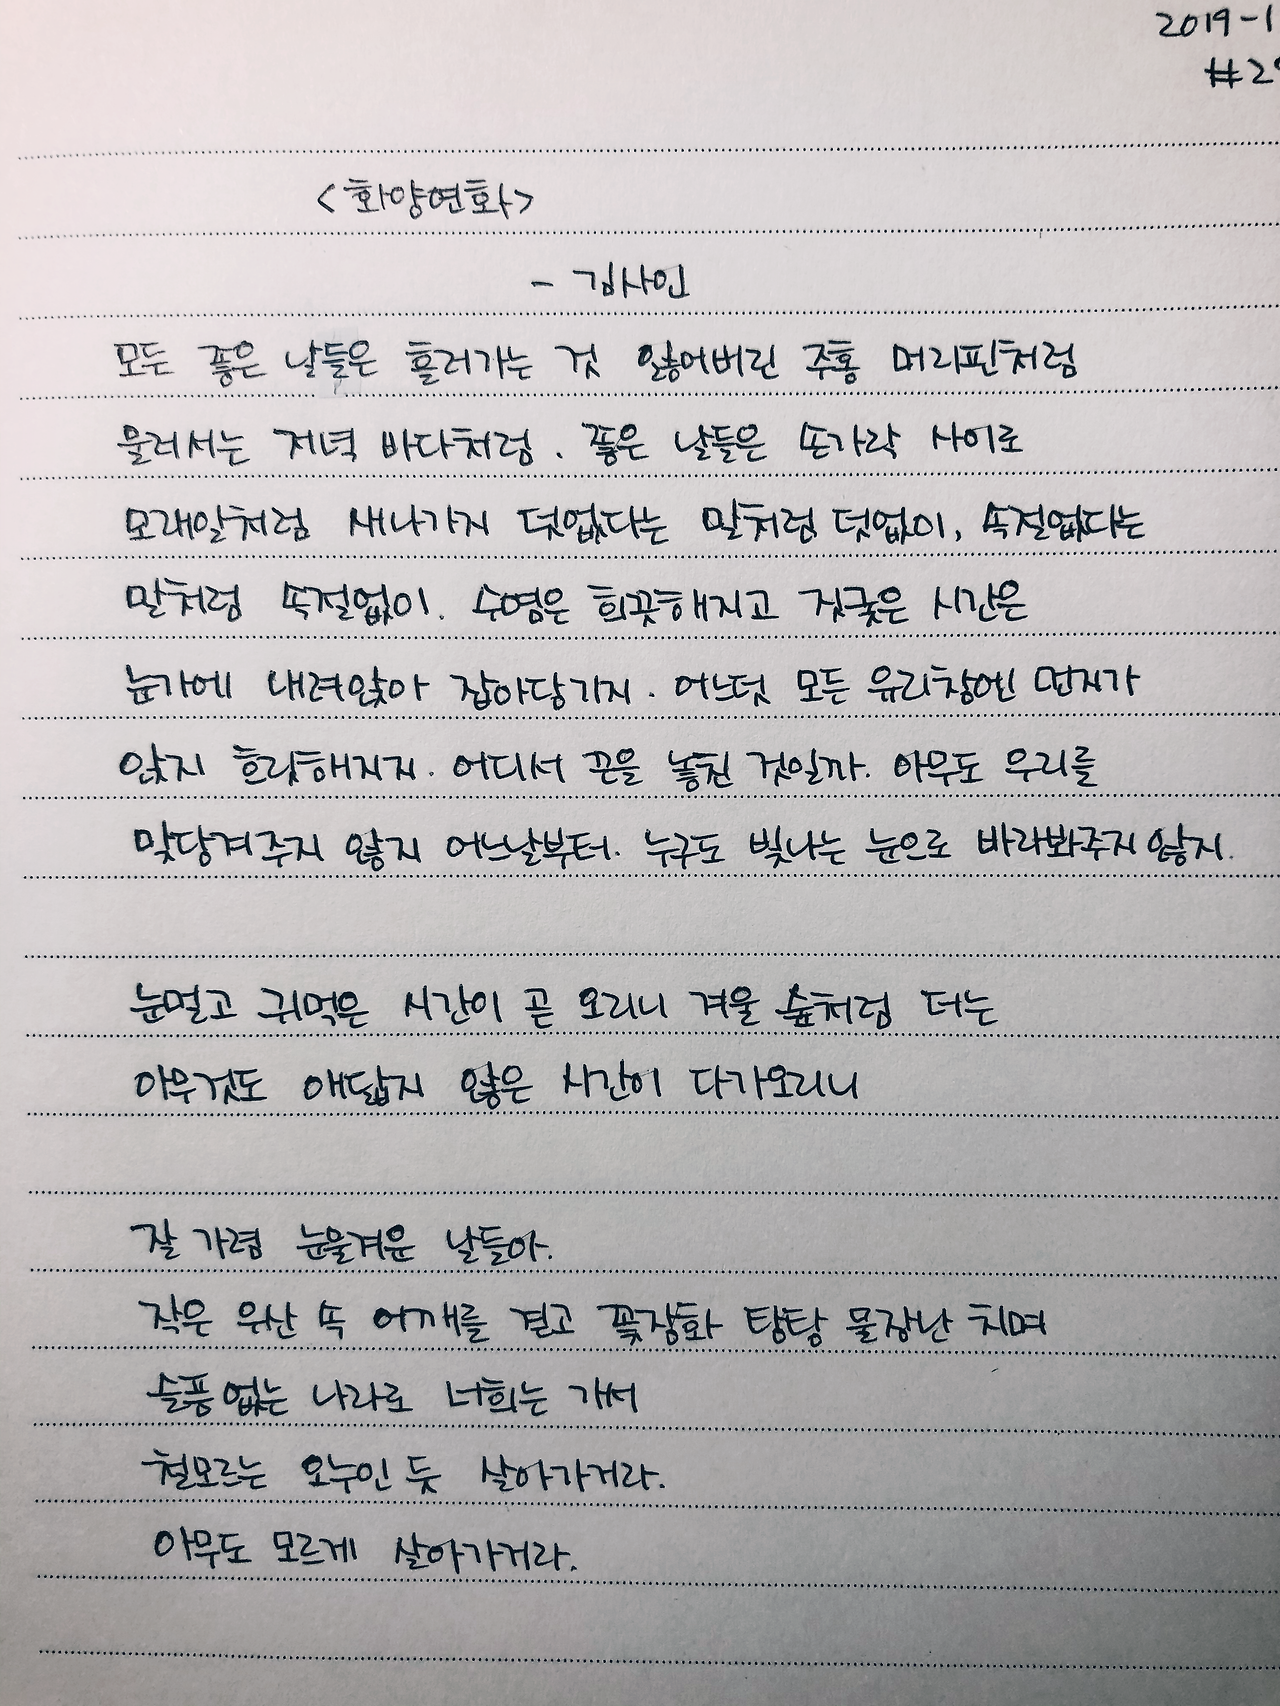 2019-1
#29
<화양연화>
- 김사인
모든 좋은 날들은 흘러가는 것 잃어버린 주홍 머리핀처럼
물러서는 저녁 바다처럼. 좋은 날들은 손가락 사이로
모래알처럼 새나가지 덧없다는 말처럼 덧없이, 속절없다는
말처럼 속절없이. 수염은 희끗해지고 짓궂은 시간은
눈가에 내려앉아 잡아당기지. 어느덧 모든 유리창엔 먼지가
앉지 흐릿해지지. 어디서 끈을 놓친 것일까. 아무도 우리를
맞당겨주지 않지 어느날부터. 누구도 빛나는 눈으로 바라봐주지 않지.
눈멀고 귀먹은 시간이 곧 오리니 겨울 숲처럼 더는
아무것도 애닯지 않은 시간이 다가오리니
잘 가렴 눈물겨운 날들아.
작은 우산 속 어깨를 겯고 꽃장화 탕탕 물장난 치며
슬픔 없는 나라로 너희는 가서
철모르는 오누인 듯 살아가거라.
아무도 모르게 살아가거라.